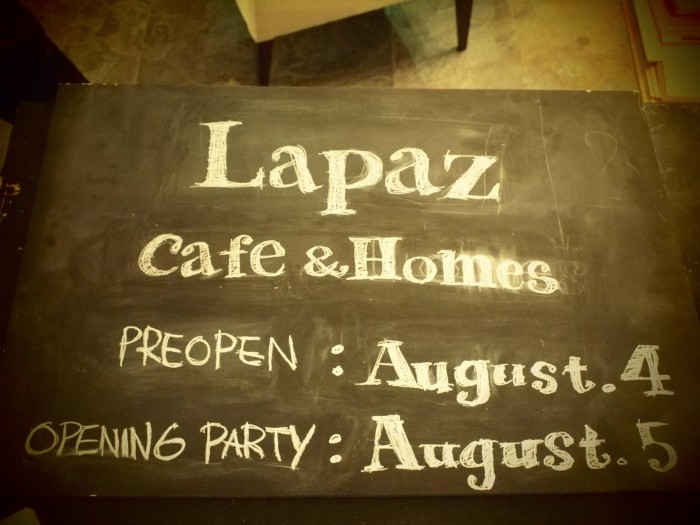 Lapaz
Cafe & Homes
PREOPEN : August. 4
OPENING PARTY : August. 5